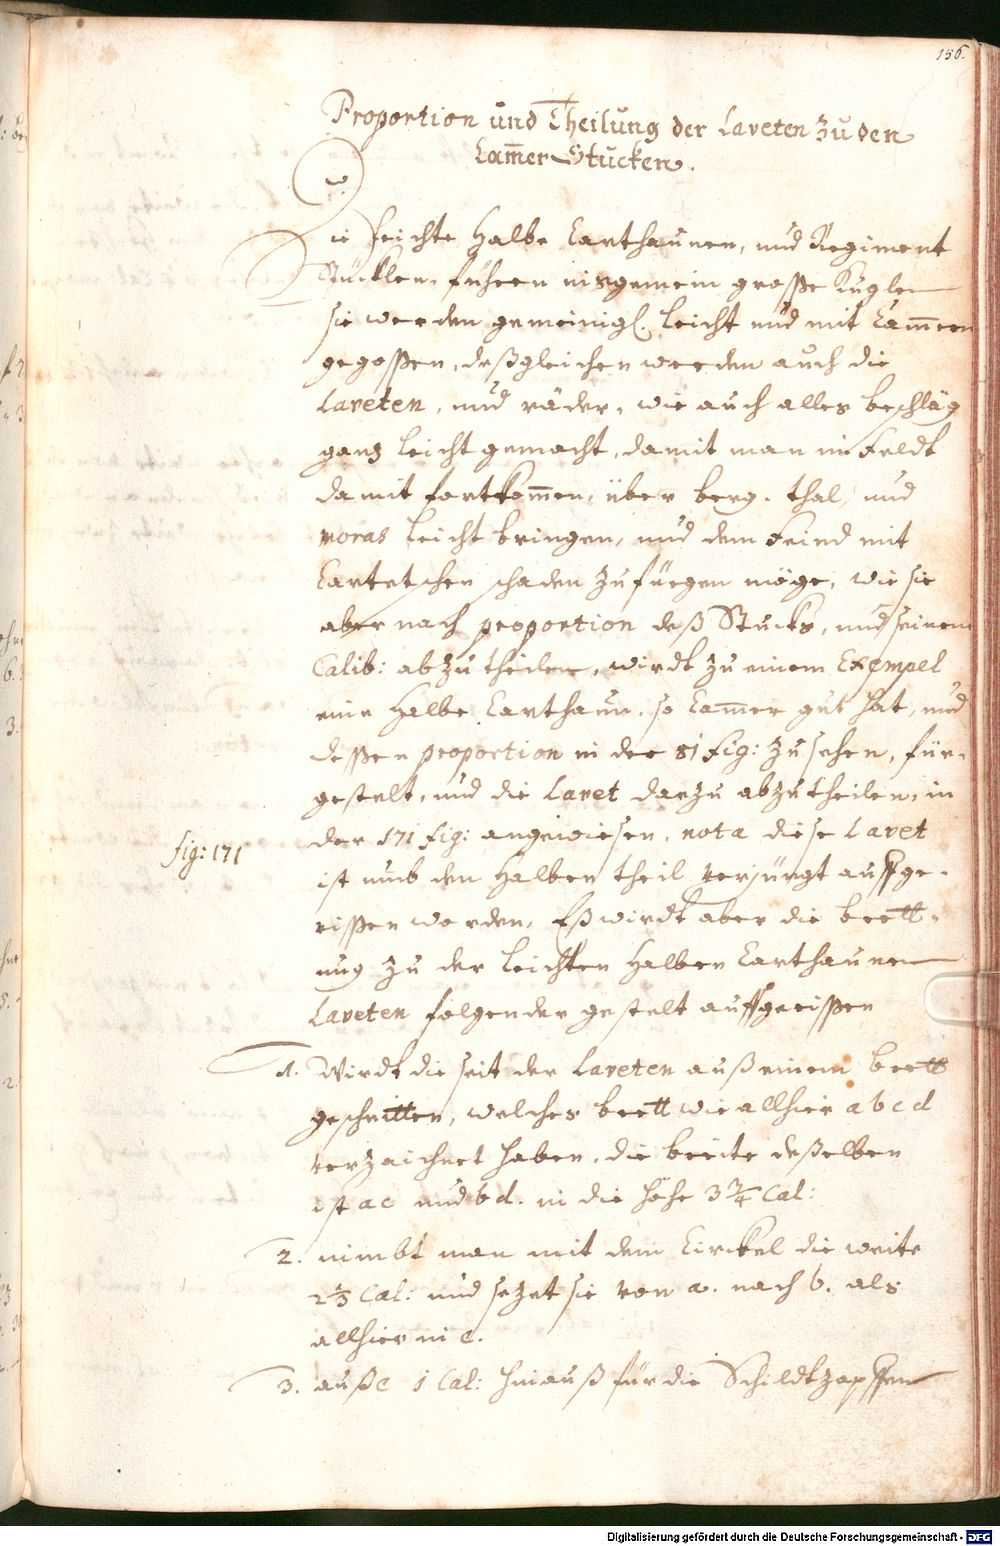 156.
Proportion und Theilung der Laveten zu den
Cam̄er Stucken.
Die leichte Halbe Carthaunen, und Regiment
Stücklen, führen insgemein grosse Kuglen
sie werden gemeinigl. leicht und mit Cam̄ern
gegossen, deßgleichen werden auch die
Laveten, und räder, wie auch alles beschläg
ganz leicht gemacht, damit man im Feldt
damit fortkom̄en, über berg, thal, und
moras leicht bringen, und dem Feind mit
Cartetschen schaden zufüegen möge, wie sie
aber nach proportion deß Stucks, und seinem
Calib: abzutheilen, wirdt zu einem Exempel
eine Halbe Carthaun, so Cam̄er gut hat, und
dessen proportion in der 81 Fig: zusehen, für-
gestelt, und die Lavet darzu abzutheilen, in
der 171 fig: angewiesen, nota diese Lavet
fig: 171
ist umb den Halben theil verjüngt auffge-
rissen worden, Eß wirdt aber die brett-
ung zu der leichten Halben Carthaunen
Laveten folgender gestelt auffgerissen
1. Wirdt die seit der Laveten auß einem brett
geschnitten, welches brett wie allhier a b c d
verzaichnet haben, die breite deßelben
ist a c und b d. in die höhe 3 3/4 Cal:
2. nimbt man mit dem Circkel die weite
2 1/3 Cal: und sezet sie von a. nach b. als
allhier in e.
3. auß e 1 Cal: hinauß für die Schildtzapffen
Digitalisierung gefördert durch die Deutsche Forschungsgemeinschaft - DFG